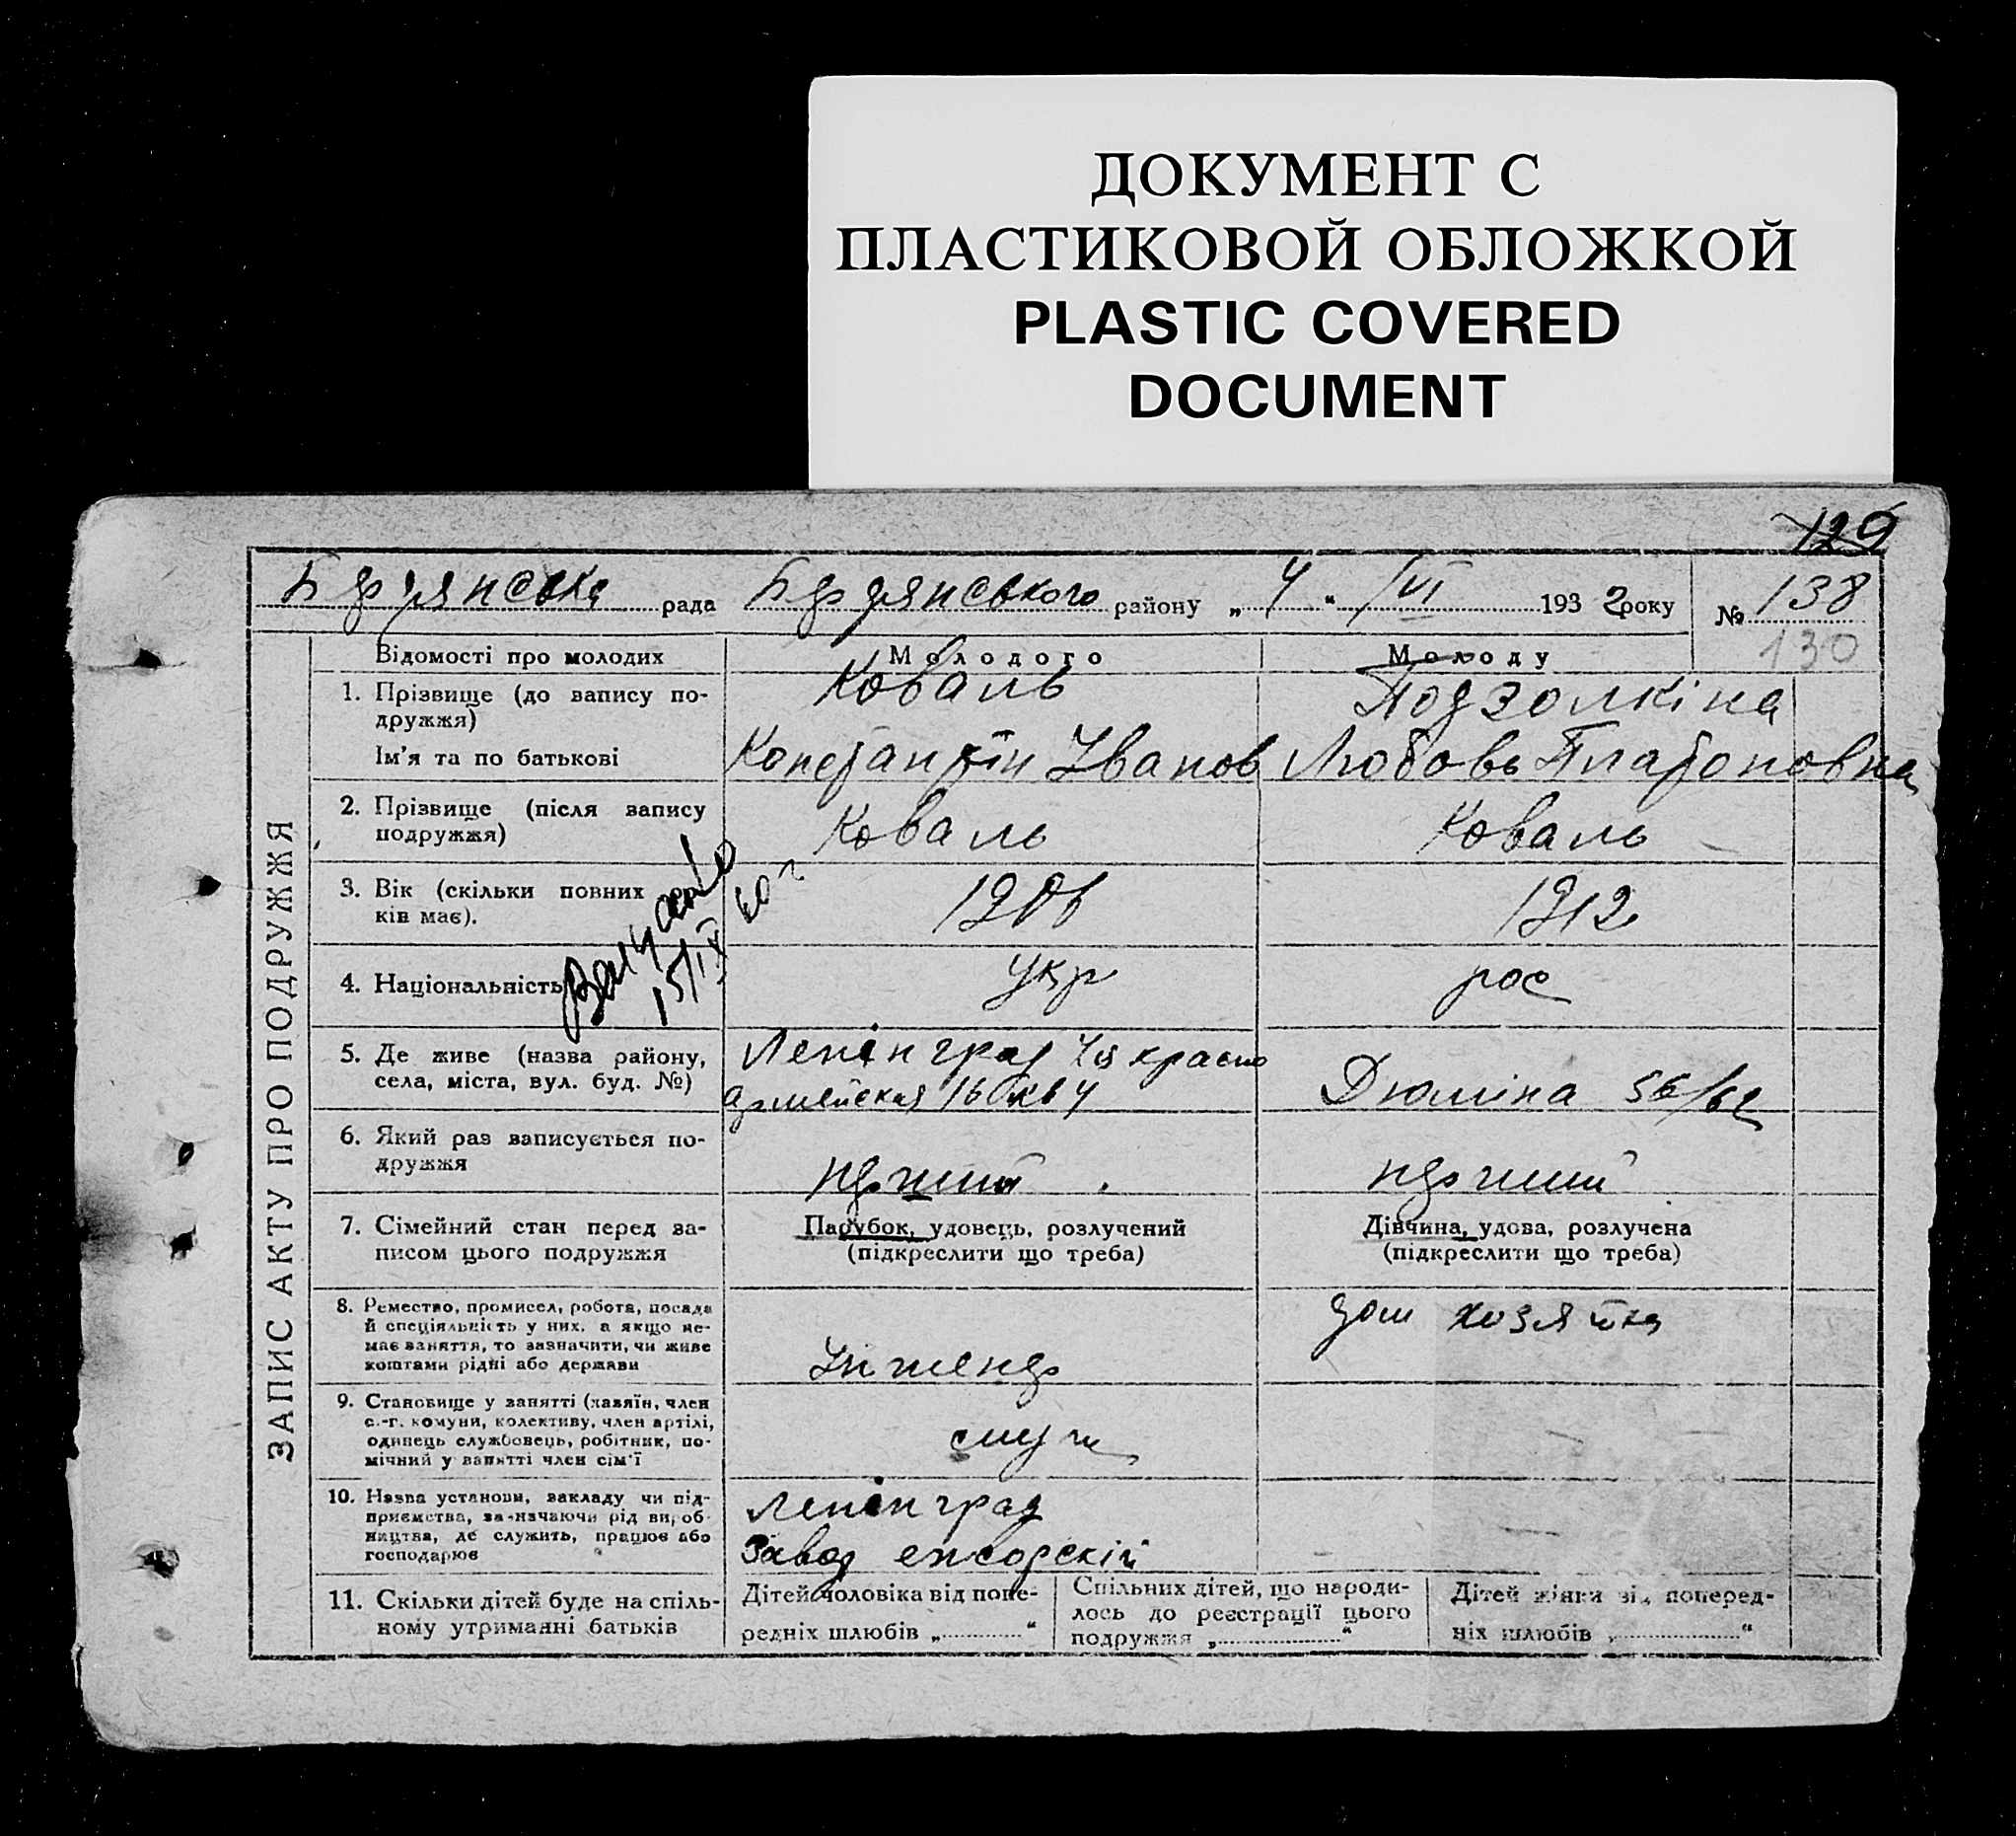 ДОКУМЕНТ С
ПЛАСТИКОВОЙ ОБЛОЖКОЙ
PLASTIC COVERED
DOCUMENT
129
Бердянська рада Бердянського району „4“ VI 1932 року № 138
130
ЗАПИС АКТУ ПРО ПОДРУЖЖЯ
Відомості про молодих Молодого Молоду
1. Прізвище (до запису по-
дружжя) Коваль Подзолкіна
Ім'я та по батькові Константін Іванов Любовь Платоновна
2. Прізвище (після запису
подружжя) Коваль Коваль
3. Вік (скільки повних ро-
ків має). 1906 1912
15/IX 60 г
4. Національність укр рос
5. Де живе (назва району, Ленінград 4я красно
села, міста, вул. буд. №) армейская 16 кв 4 Дюміна 56/62
6. Який раз записується по-
дружжя перший перший
7. Сімейний стан перед за- Парубок, удовець, розлучений Дівчина, удова, розлучена
писом цього подружжя (підкреслити що треба) (підкреслити що треба)
8. Ремество, промисел, робота, посада дом хозяйка
й спеціяльність у них, а якщо не-
має заняття, то зазначити, чи живе
коштами рідні або держави Інженер
9. Становище у занятті (хазяїн, член
с.-г. комуни, колективу, член артілі,
одинець службовець, робітник, по- служ
мічний у занятті член сім'ї
10. Назва установи, закладу чи під- Ленінград
приємства, зазначаючи рід вироб-
ництва, де служить, працює або Завод
господарює
11. Скільки дітей буде на спіль- Дітей чоловіка від попе- Спільних дітей, що народи- Дітей жінки від поперед-
ному утриманні батьків редніх шлюбів „ “ лось до реєстрації цього ніх шлюбів „ “
подружжя „ “